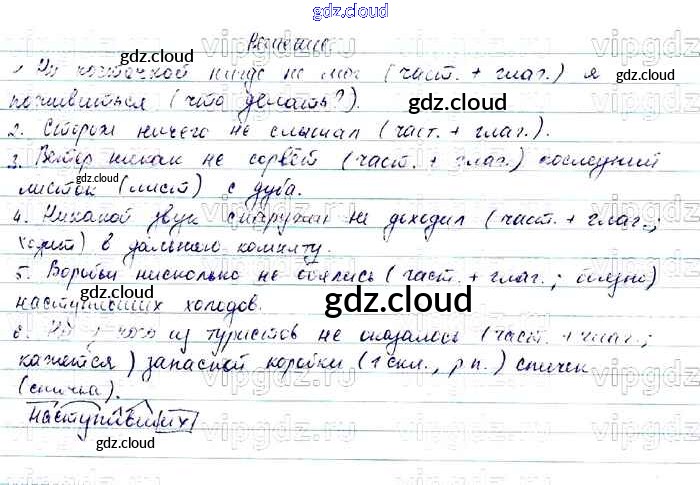 gdz.cloud
Решение
gdz.cloud
косточкой нигде не мог (част. + глаг.) я
поживиться (что делать?).
gdz.cloud
2. Сторож ничего не слышал (част. + глаг.).
gdz.cloud
3. Ветер никак не сорвёт (част. + глаг.) последний
листок (лист) с дуба.
gdz.cloud
4. Никакой звук снаружи не доходил (част. + глаг.;
ходит) в дальнюю комнату.
gdz.cloud
5. Воробьи нисколько не боялись (част. + глаг.;
наступивших холодов.
gdz.cloud
6. Ни у кого из туристов не оказалось (част. + глаг.;
кажется) запасной коробки (1 скл., р.п.) спичек
(спичка).
gdz.cloud
наступивших
gdz.cloud
gdz.cloud
vipgdz